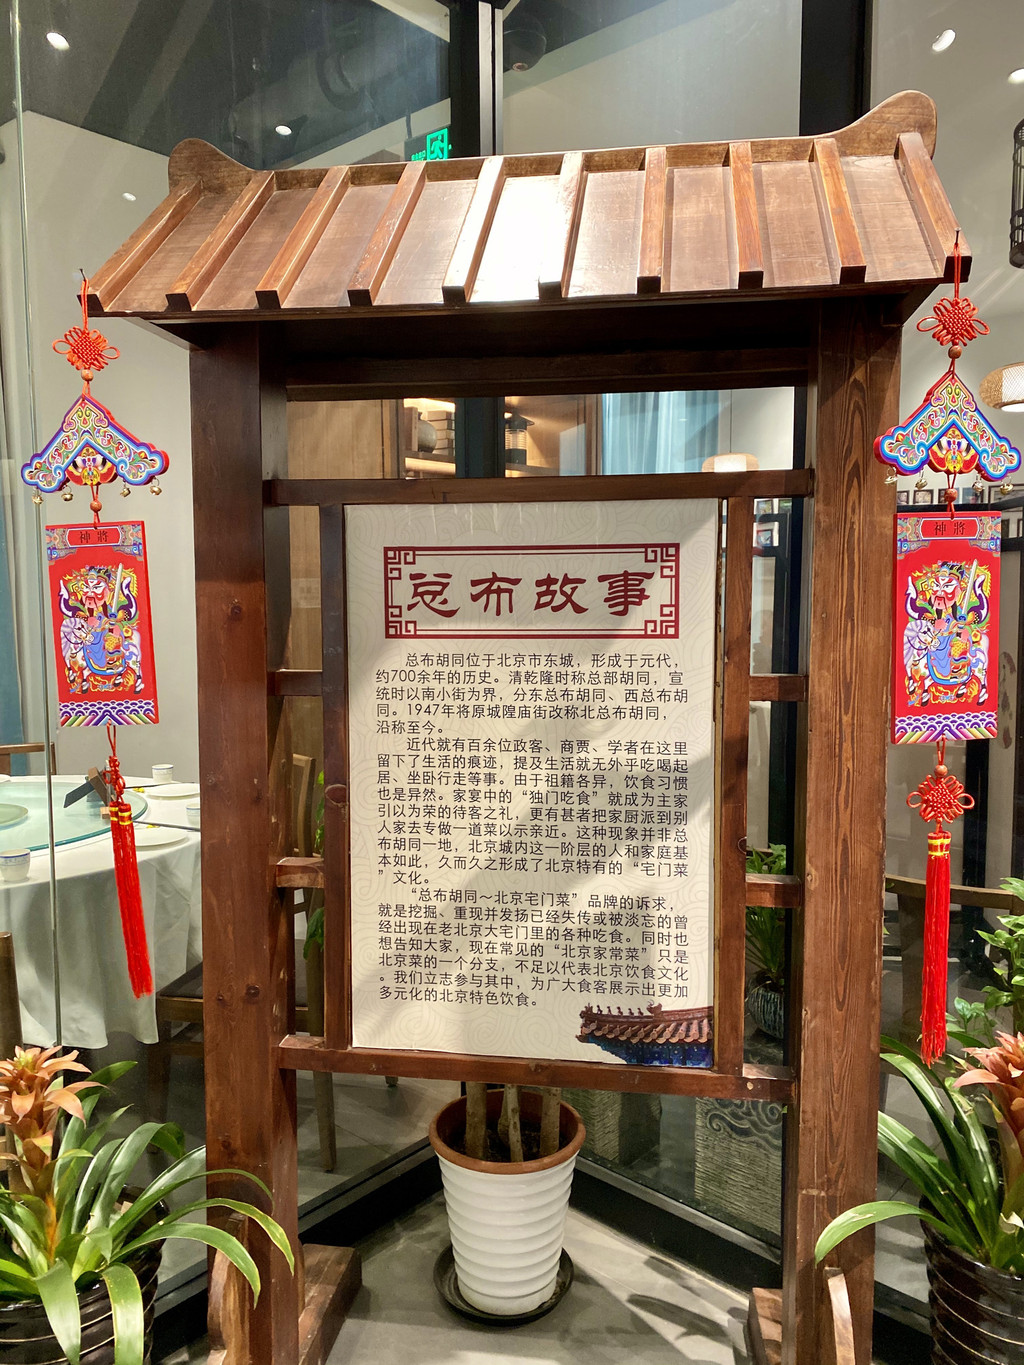 总布故事
神將
神將
总布胡同位于北京市东城，形成于元代，
约700余年的历史。清乾隆时称总部胡同，宣
统时以南小街为界，分东总布胡同、西总布胡
同。1947年将原城隍庙街改称北总布胡同，
沿称至今。
近代就有百余位政客、商贾、学者在这里
留下了生活的痕迹，提及生活就无外乎吃喝起
居、坐卧行走等事。由于祖籍各异，饮食习惯
也是异然。家宴中的“独门吃食”就成为主家
引以为荣的待客之礼，更有甚者把家厨派到别
人家去专做一道菜以示亲近。这种现象并非总
布胡同一地，北京城内这一阶层的人和家庭基
本如此，久而久之形成了北京特有的“宅门菜
”文化。
“总布胡同～北京宅门菜”品牌的诉求，
就是挖掘、重现并发扬已经失传或被淡忘的曾
经出现在老北京大宅门里的各种吃食。同时也
想告知大家，现在常见的“北京家常菜”只是
北京菜的一个分支，不足以代表北京饮食文化
。我们立志参与其中，为广大食客展示出更加
多元化的北京特色饮食。